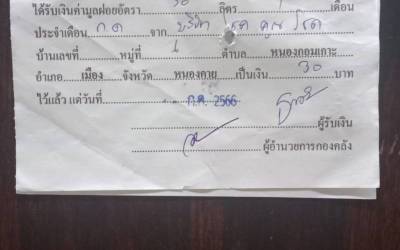 ได้รับเงินค่ามูลฝอยอัตรา 30 ลิตร เดือน
ประจำเดือน ก.ค จาก บริษัท โชค
บ้านเลขที่ หมู่ที่ 1 ตำบล หนองกอมเกาะ
อำเภอ เมือง จังหวัด หนองคาย เป็นเงิน 30 บาท
ไว้แล้ว แต่วันที่ ก.ค. 2566
ผู้รับเงิน
ผู้อำนวยการกองคลัง